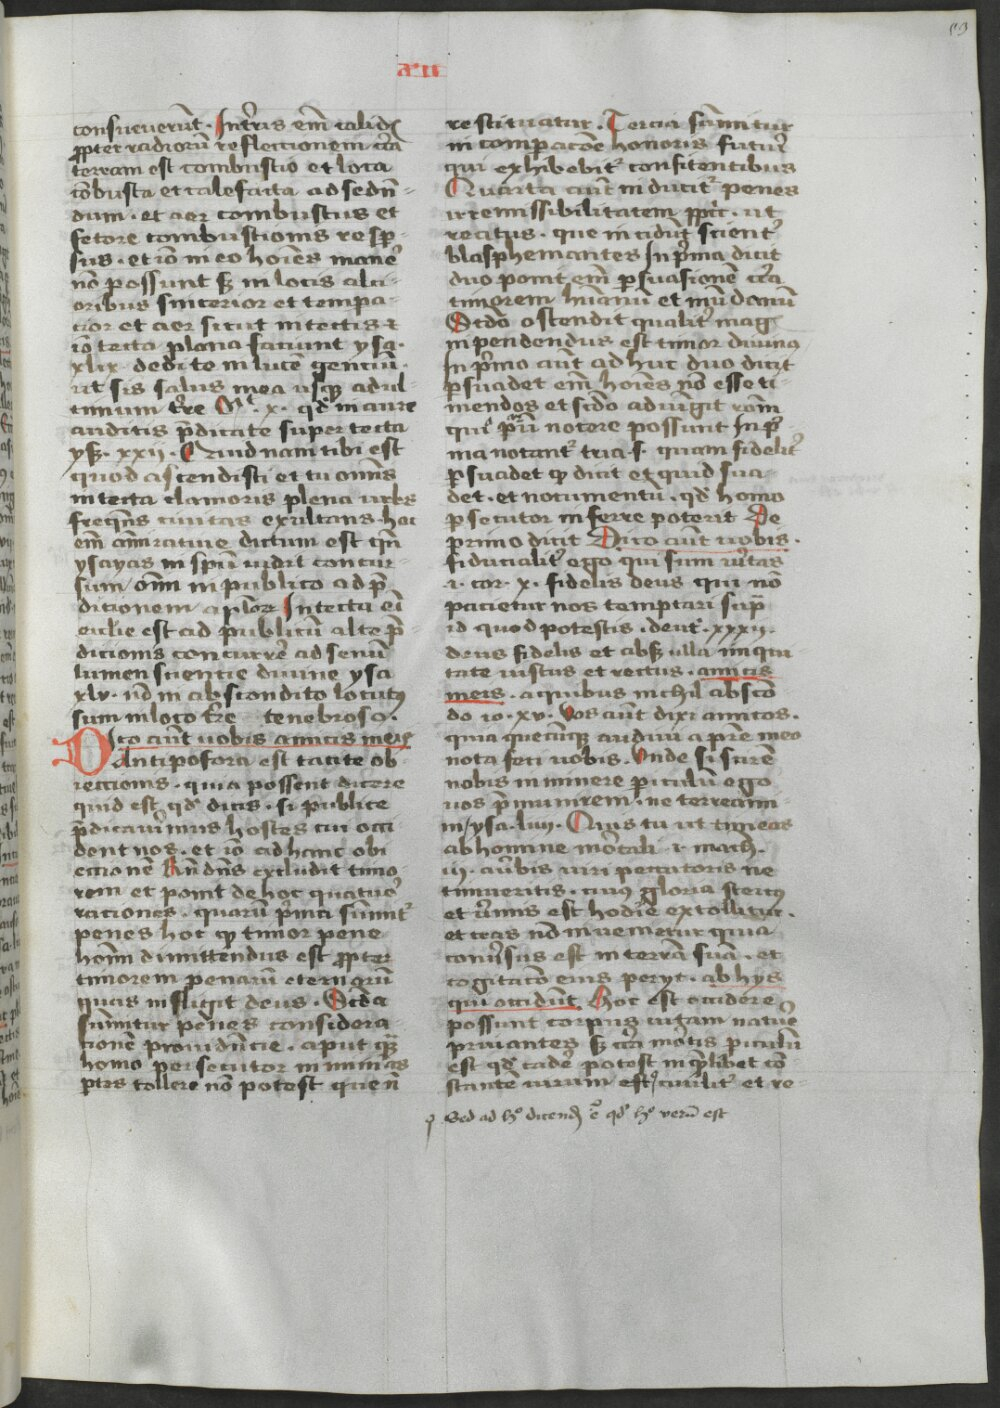 a·ii
consueverūt · In t̄ris em̄ calidis
ꝓpter radiorū reflectionem circa
terram est combustio et loca
cōbusta et calefacta ad seden̄-
dum · et aer combustus et
fetore combustionis resper-
sus · et iō in eo hoīes manēt
nō possunt sꝫ in locis alti-
oribus sincerior et tempa-
cior et aer sicut in tectis et
iō tecta plana faciunt ysa ·
xlix · dedi te in lucē gentiū
ut sis salus mea usqꝫ ad ul-
timum t̄re Mt̄ · x · qd̄ in aure
auditis p̄dicate super tecta
ysꝫ · xxii · Quid nam tibi est
quod ascendisti et tu omnis
in tecta clamoris plena urbs
freqn̄s civitas exultans · hoc
em̄ admirative dictum est qn̄
ysayas in spū vidit concur-
sum om̄ in publico ad p̄-
dicionem aplor In tecta ei
ire est ad publicū alte p̄-
dicionis concurrē ad senū
lumen scientie divine ysa
xlv · nō in abscondito locutꝰ
sum in loco t̄re tenebroso ·
Dico aūt vobis amicis meis
Antipofora est tacite ob-
iectionis · quia possent dicere
quid est qd̄ dicis · si publice
p̄dicav̄imus hostes cui occi
dent nos · et iō ad hanc obi
ectionē Rn̄ dn̄s excludit timo-
rem et ponit de hoc quatuor
raciones · quarū p̄ma sūmit̄
penes hoc qꝫ timor pene
homī dimittendus est ꝓpter
timorem penarū eternarū
quas infligit deus · Scda
sūmitur penes considera
cionē providn̄cie · aput quā
homo persecutor in minimas
ptes tollere nō potest quen̄
restituatur · Tercia sūmitur
in compacōe honoris futuri
qui exhibebit̄ confitentibus
Quarta aūt inducit̄ penes
irremissibilitatem pp̄ti · ut
reatus · que incidūt scient̄
blasphemantes In p̄ma dicit
duo ponit em̄ psuasionē circa
timorem humanū et mūdanū
Scdo ostendit qualit̄ magis
inpendendus est timor divinus
In p̄mo aūt adhuc duo dicit
psuadet em̄ hoīes nō esse ti-
mendos et scdo adiūgit rōm
quia parū nocere possunt In p̄-
ma notant̄ tria · s · quam fidelit̄
psuadet qꝫ dicit et quid sua-
det · et nocumentū · qd̄ homo
psecutor inferre poterit De
primo dicit Dico aūt vobis ·
fiducialit̄ ego qui sum v̄itas
i · cor · x · fidelis deus qui nō
pacietur nos temptari sup̄
id quod potestis · deut̄ · xxxii ·
deus fidelis et absqꝫ ulla iniqui
tate iustus et rectus · amicis
meis · a quibus nichil abscō
do io · xv · Vos aūt dixi amicos ·
quia quecūqꝫ audivi a pr̄e meo
nota feci vobis · Unde si scirē
vobis inminere piculū ego
vos p̄munirem · ne terreami-
ni ysa · liii · Quis tu ut timeas
ab homine mōtali · i · mach̄ ·
ii · a v̄bis viri peccatoris ne
timueritis · cuius gloria stercꝰ
et v̄mis est hodie extollitur ·
et cras nō invenietur quia
conv̄sus est in terrā suā · et
cogitatō eius peryt · ab hys
qui occidūt Hoc est occidere
possunt corpus vitam nature
privantes sꝫ circa mōtis piculū
est qd̄ cadē potest in q̄mlibet cō-
stantē virum est civilit̄ et re-
Sed ad h̊ dicend̄ ē qd̄ h̊ verū est